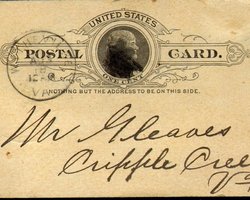 UNITED STATES
POSTAL CARD.
ONE CENT
NOTHING BUT THE ADDRESS TO BE ON THIS SIDE.
VA
Mr Gleaves
Cripple Cree
Va